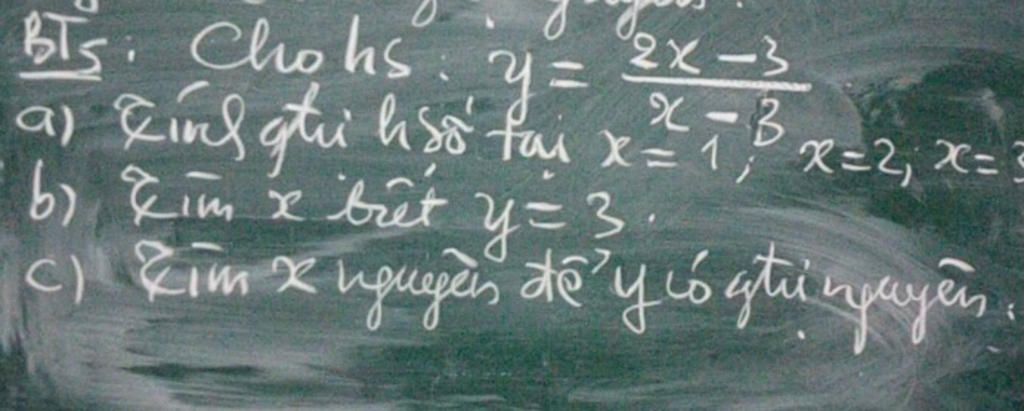 BT5: Cho hs: y = \frac{2x - 3}{x - 3}
a) Tính gtrị h số tại x = 1; x = 2; x = 3
b) Tìm x biết y = 3.
c) Tìm x nguyên để y có gtrị nguyên.